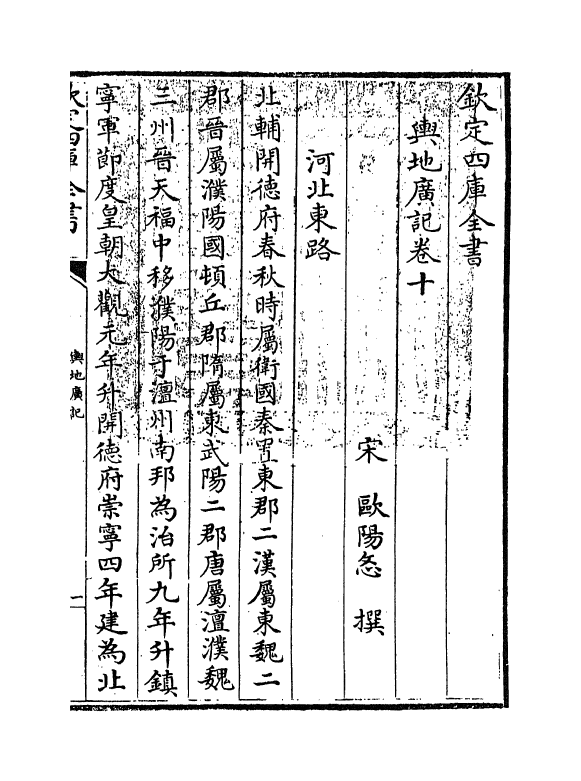 欽定四庫全書
輿地廣記卷十
宋 歐陽忞 撰
河北東路
北輔開德府春秋時屬衛國秦置東郡二漢屬東魏二
郡晉屬濮陽國頓丘郡隋屬東武陽二郡唐屬澶濮魏
三州晉天福中移濮陽于澶州南邦為治所九年升鎮
寧軍節度皇朝大觀元年升開德府崇寧四年建為北
欽定四庫全書
輿地廣記
一